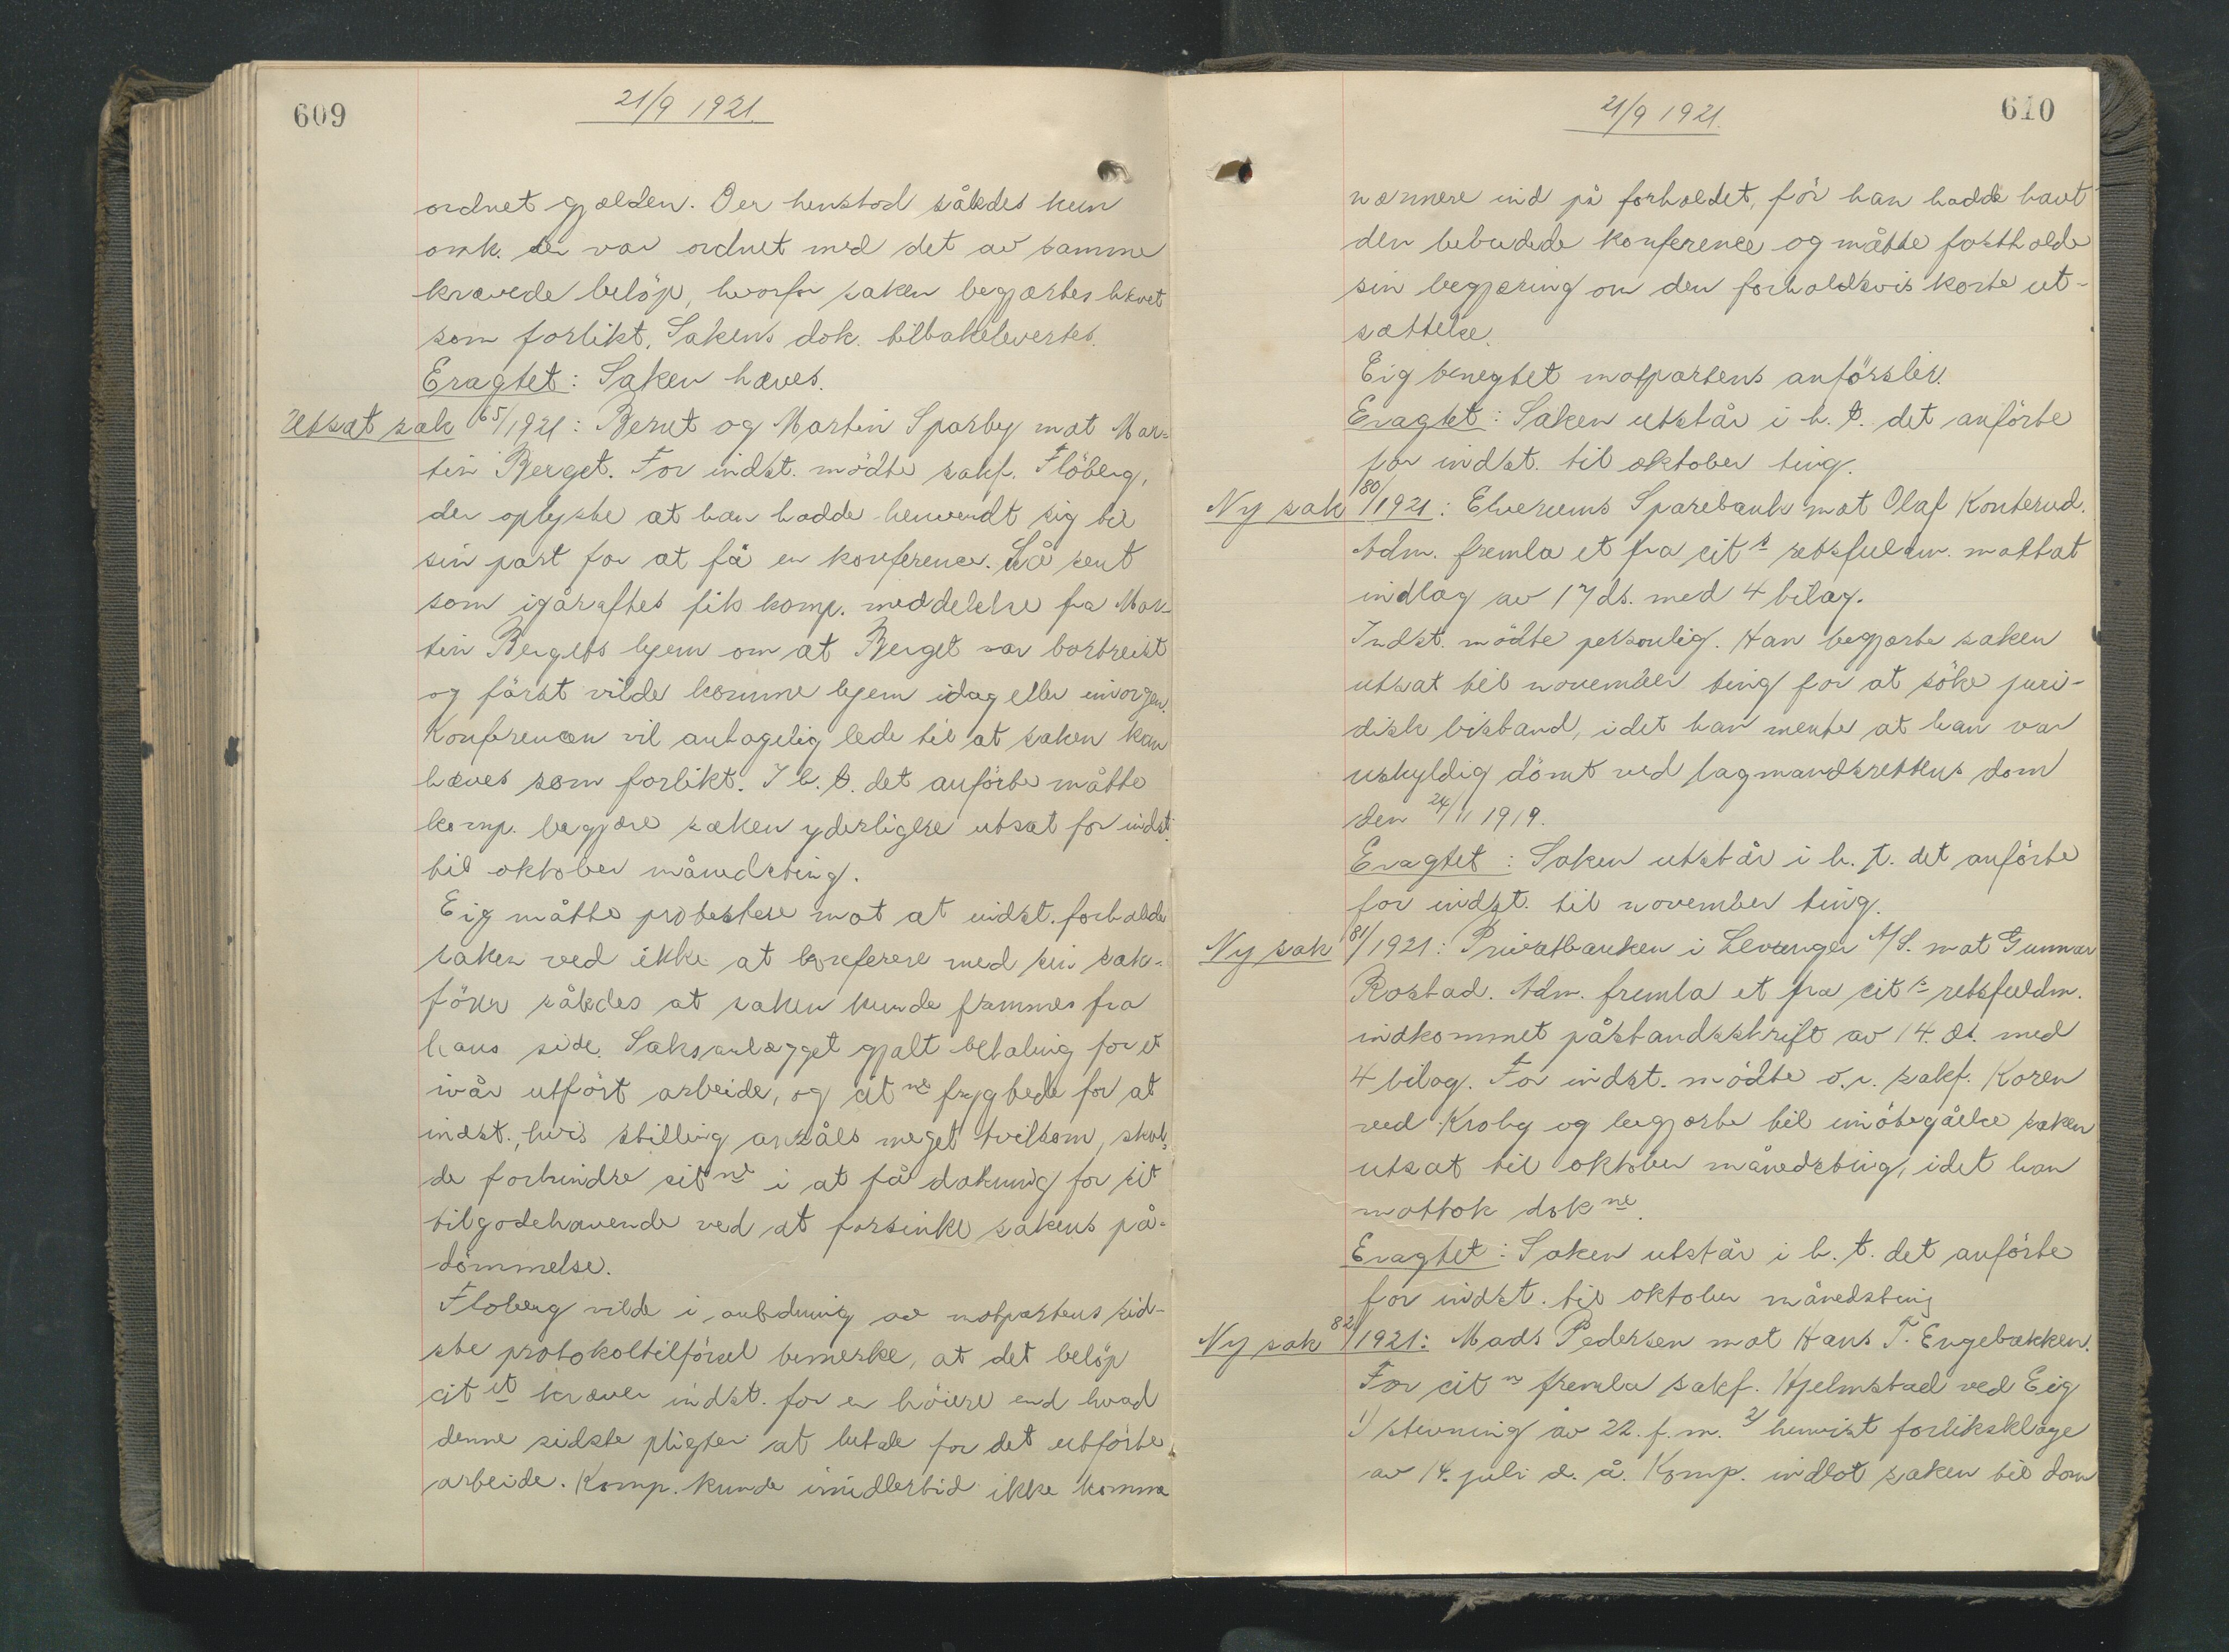 609
21/9 1921.
ordnet gjælden. Der henstod således kun
omk. der var ordnet med det av samme
krævede beløp, hvorfor saken begjærtes hævet
som forlikt. Sakens dok. tilbakelevertes.
Eragtet: Saken hæves.
Utsat sak 65/1921: Bernt og Martin Sparby mot Mar-
tin Berget. For indst. mødte sakf. Flöberg,
der oplyste at han hadde henvendt sig til
sin part for at få en konference. Så sent
som igåraftes fik komp. meddelelse fra Mar-
tin Bergets hjem om at Berget var bortreist
og først vilde komme hjem idag eller imorgen.
Konferencen vil antagelig lede til at saken kan
hæves som forlikt. I h. t. det anförte måtte
komp. begjære saken yderligere utsat for indst.
til oktober månedsting.
Eig måtte protestere mot at indst. forhaler
saken ved ikke at konferere med sin sak-
fører således at saken kunde fremmes fra
hans side. Saksanlægget gjalt betaling for et
ivår utfört arbeide, og cit ne frygtede for at
indst., hvis stilling ansåes meget tvilsom, skul-
de forhindre cit ne i at få dækning for sit
tilgodehavende ved at forsinke sakens på-
dömmelse.
Floberg vilde i anledning av motpartens sid-
ste protokoltilförsel bemerke, at det belöp
cit et kræver indst. for er höiere end hvad
denne sidste pligter at betale for det utförte
arbeide. Komp. kunde imidlertid ikke komme
21/9 1921.
610
nærmere ind på forholdet, för han hadde havt
den bebudede konference og måtte fastholde
sin begjæring om den forholdsvis korte ut-
sættelse.
Eig benegtet motpartens anförsler.
Eragtet: Saken utstår i h. t. det anförte
for indst. til oktober ting.
Ny sak 80/1921: Elverums Sparebank mot Olaf Konterud.
Adm. fremla et fra cit s retsfuldm. mottat
indlæg av 17 ds. med 4 bilag.
Indst. mödte personlig. Han begjærte saken
utsat til november ting for at söke juri-
disk bistand, idet han mente at han var
uskyldig dömt ved lagmandsrettens dom
den 24/11 1919.
Eragtet: Saken utstår i h. t. det anförte
for indst. til november ting.
Ny sak 81/1921: Privatbanken i Levanger A/S. mot Gunnar
Rostad. Adm. fremla et fra cit s retsfuldm.
indkommet påstandsskrift av 14. ds. med
4 bilag. For indst. mödte o.r. sakf. Koren
ved Kroby og begjærte til imötegåelse saken
utsat til oktober månedsting, idet han
mottok dok ne.
Eragtet: Saken utstår i h. t. det anförte
for indst. til oktober månedsting
Ny sak 82/1921: Mads Pedersen mot Hans T. Engebakken.
For cit n fremla sakf. Hjelmstad ved Eig
1) stevning av 22. f. m. 2) henvist forliksklage
av 14. juli d. å. Komp. indlot saken til dom